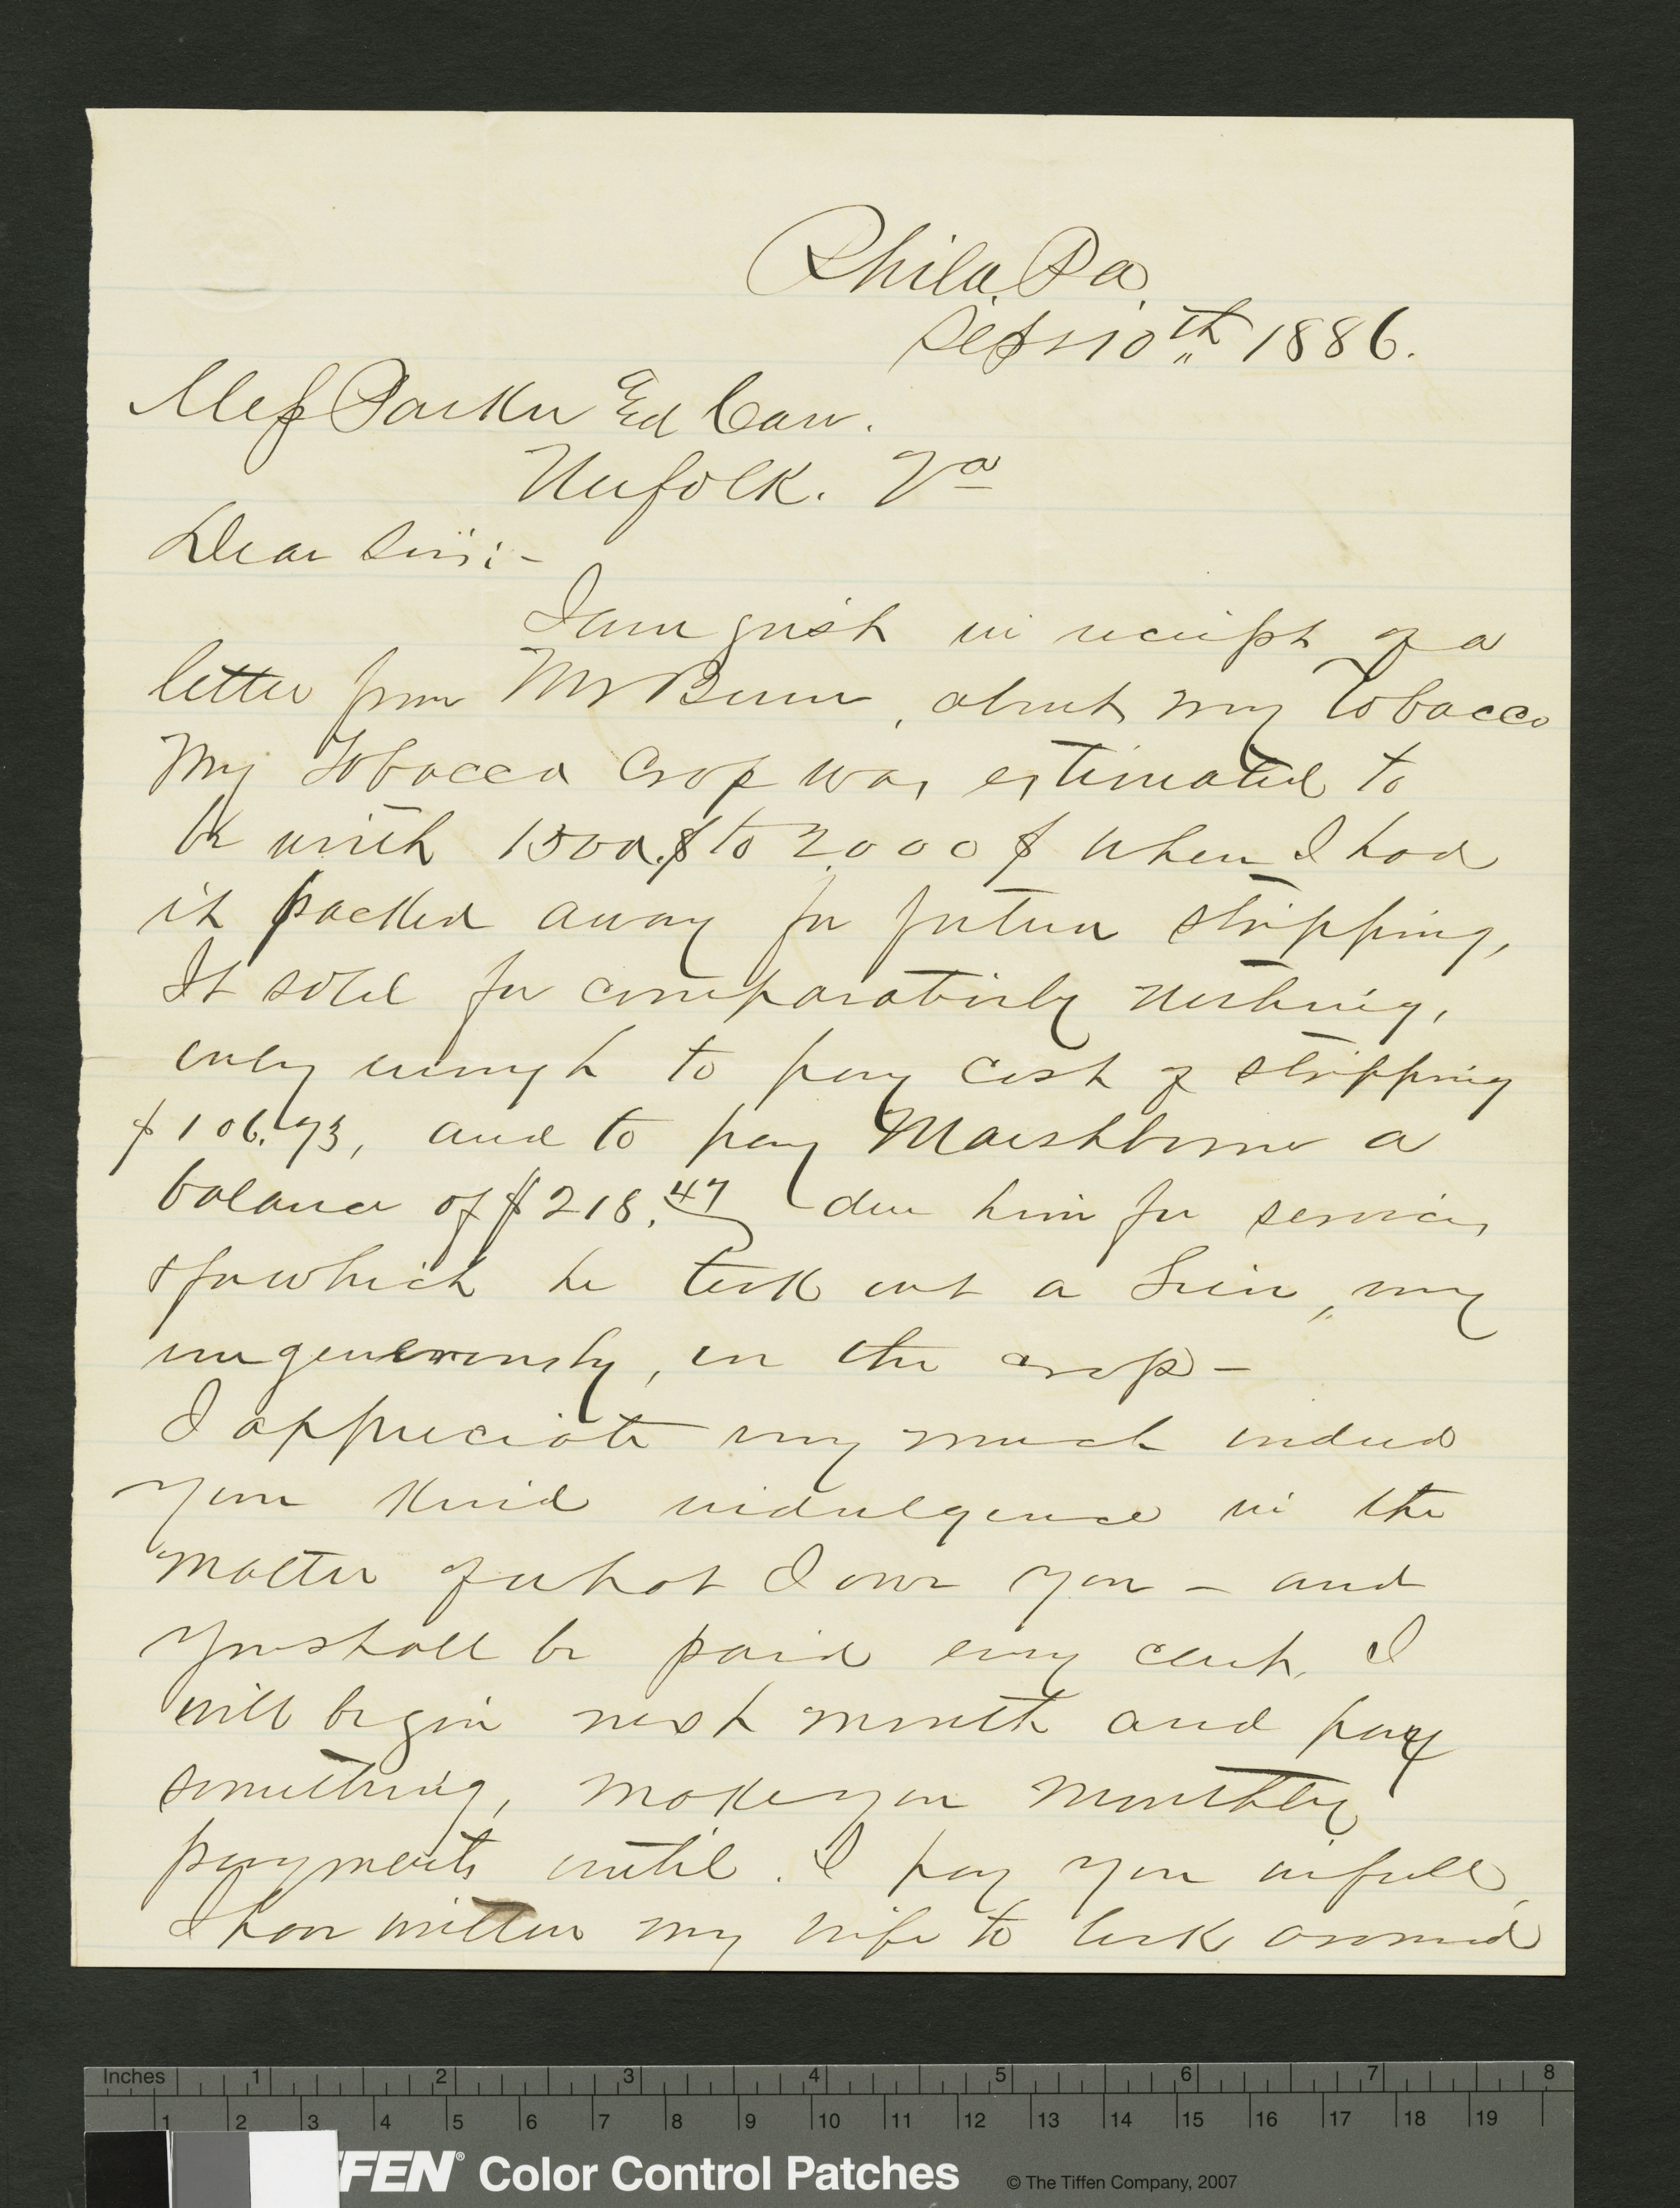 Phila. Pa.
Sept 10th 1886.
Mess Parker Ed Carr.
Norfolk. Va
Dear Sirs:-
I am just in receipt of a
letter from Mr Bunn, about my Tobacco
My Tobacco Crop was estimated to
be worth 1500.$ to 2.000$ when I had
it packed away for future stripping,
It sold for comparatively nothing,
only enough to pay cost of stripping
$106.93, and to pay Marshborne a
balance of $218.47 due him for services
& for which he took out a Lien, very
ungenerously, on the crop -
I appreciate very much indeed
your kind indulgence in the
matter of what I owe you - and
you shall be paid every cent. I
will begin next month and pay
something, make you monthly
payments until . I pay you in full,
I have written my wife to look around
Inches 1 2 3 4 5 6 7 8
1 2 3 4 5 6 7 8 9 10 11 12 13 14 15 16 17 18 19
FFEN® Color Control Patches © The Tiffen Company, 2007